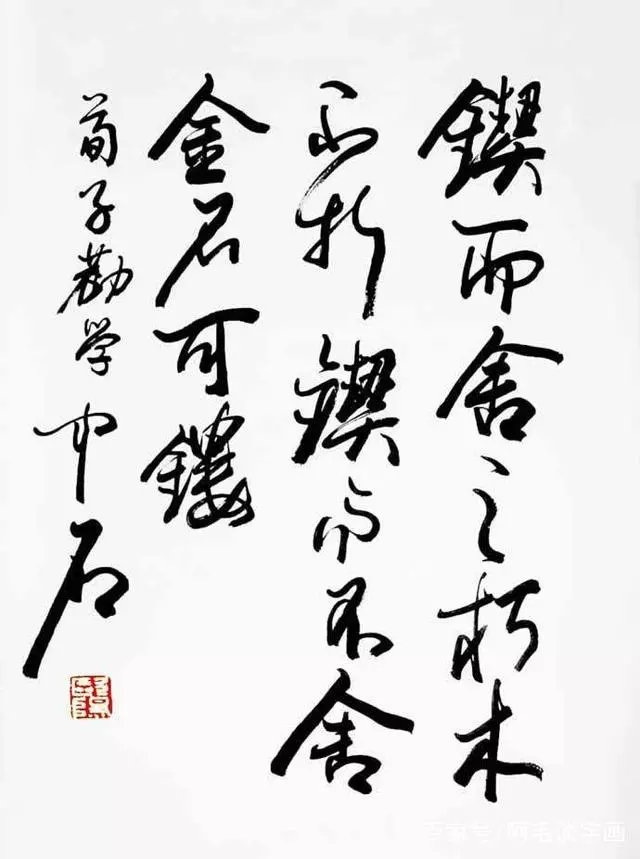 鍥而舍之朽木
不折鍥而不舍
金石可鏤
荀子勸学 中石
百家号/阿毛谈字画